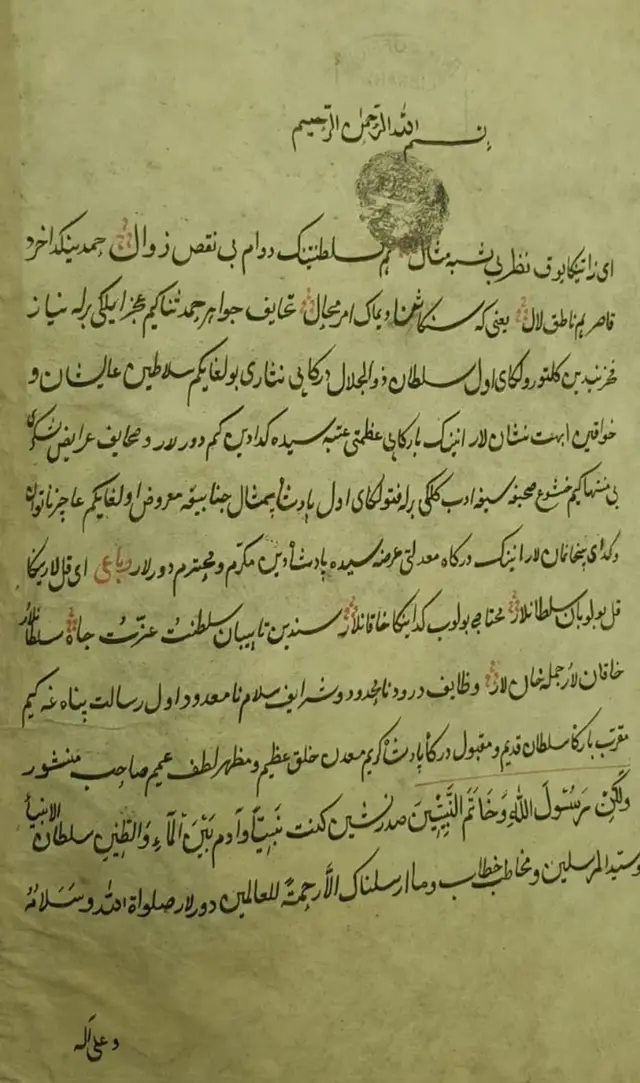 بسم الله الرحمن الرحيم
ای ذاتیکا یوق نظر بی شبه مثال هم سلطنتینک دوام بی نقص زوال حمدینکدا خرد
قاصر هم ناطق لال یعنی که سنکا دیماک امر محال تحایف جواهر حمد ثنا کیم عجز ایلکی برله نیاز
کلتورولکای اول سلطان ذو الجلال درکاهی نثاری بولغایکیم سلاطین عالیشان و
خواقین ابهت نشان لار انینک بارکاهی عظمتی عتبه سیده کدادین کم دورلار و صحایف عرایض
بی منتها کیم خشوع صحیفه سیغه ادب کلکی برله اول پادشاه بیمثال جنابیغه معروض اولغایکیم عاجز ناتوان
و کدای بیخانمان لار انینک درکاه معدلتی عرصه سیده پادشادین مکرم و محترم دورلار رباعی ای قل لاریکا
قل بولوبان سلطانلار محتاج بولوب کداینکا خاقانلار سندین تاپیبان سلطنت عزت جاه سلطانلار
خاقان لار جمله خان لار وظایف درود نامحدود و شرایف سلام نامعدود اول رسالت پناه غه کیم
مقرب بارکاه سلطان قدیم و مقبول درکاه پادشاه کریم معدن خلق عظیم و مظهر لطف عمیم صاحب منشور
ولكن رسول الله وخاتم النبيين صدرنشین كنت نبيا وآدم بين الماء والطين سلطان الانبیا
وسید المرسلین و مخاطب خطاب وما ارسلناک الا رحمة للعالمین دورلار صلواة الله وسلامه
وعلی آله